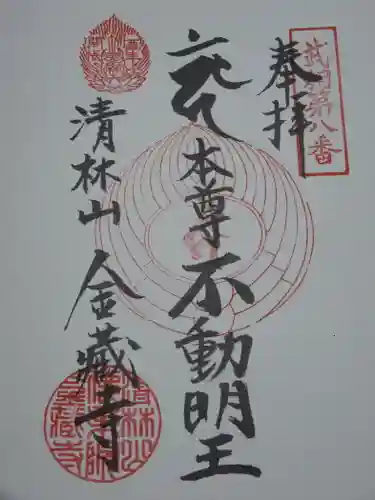 奉拝
武州第八番
本尊不動明王
清林山
金藏寺